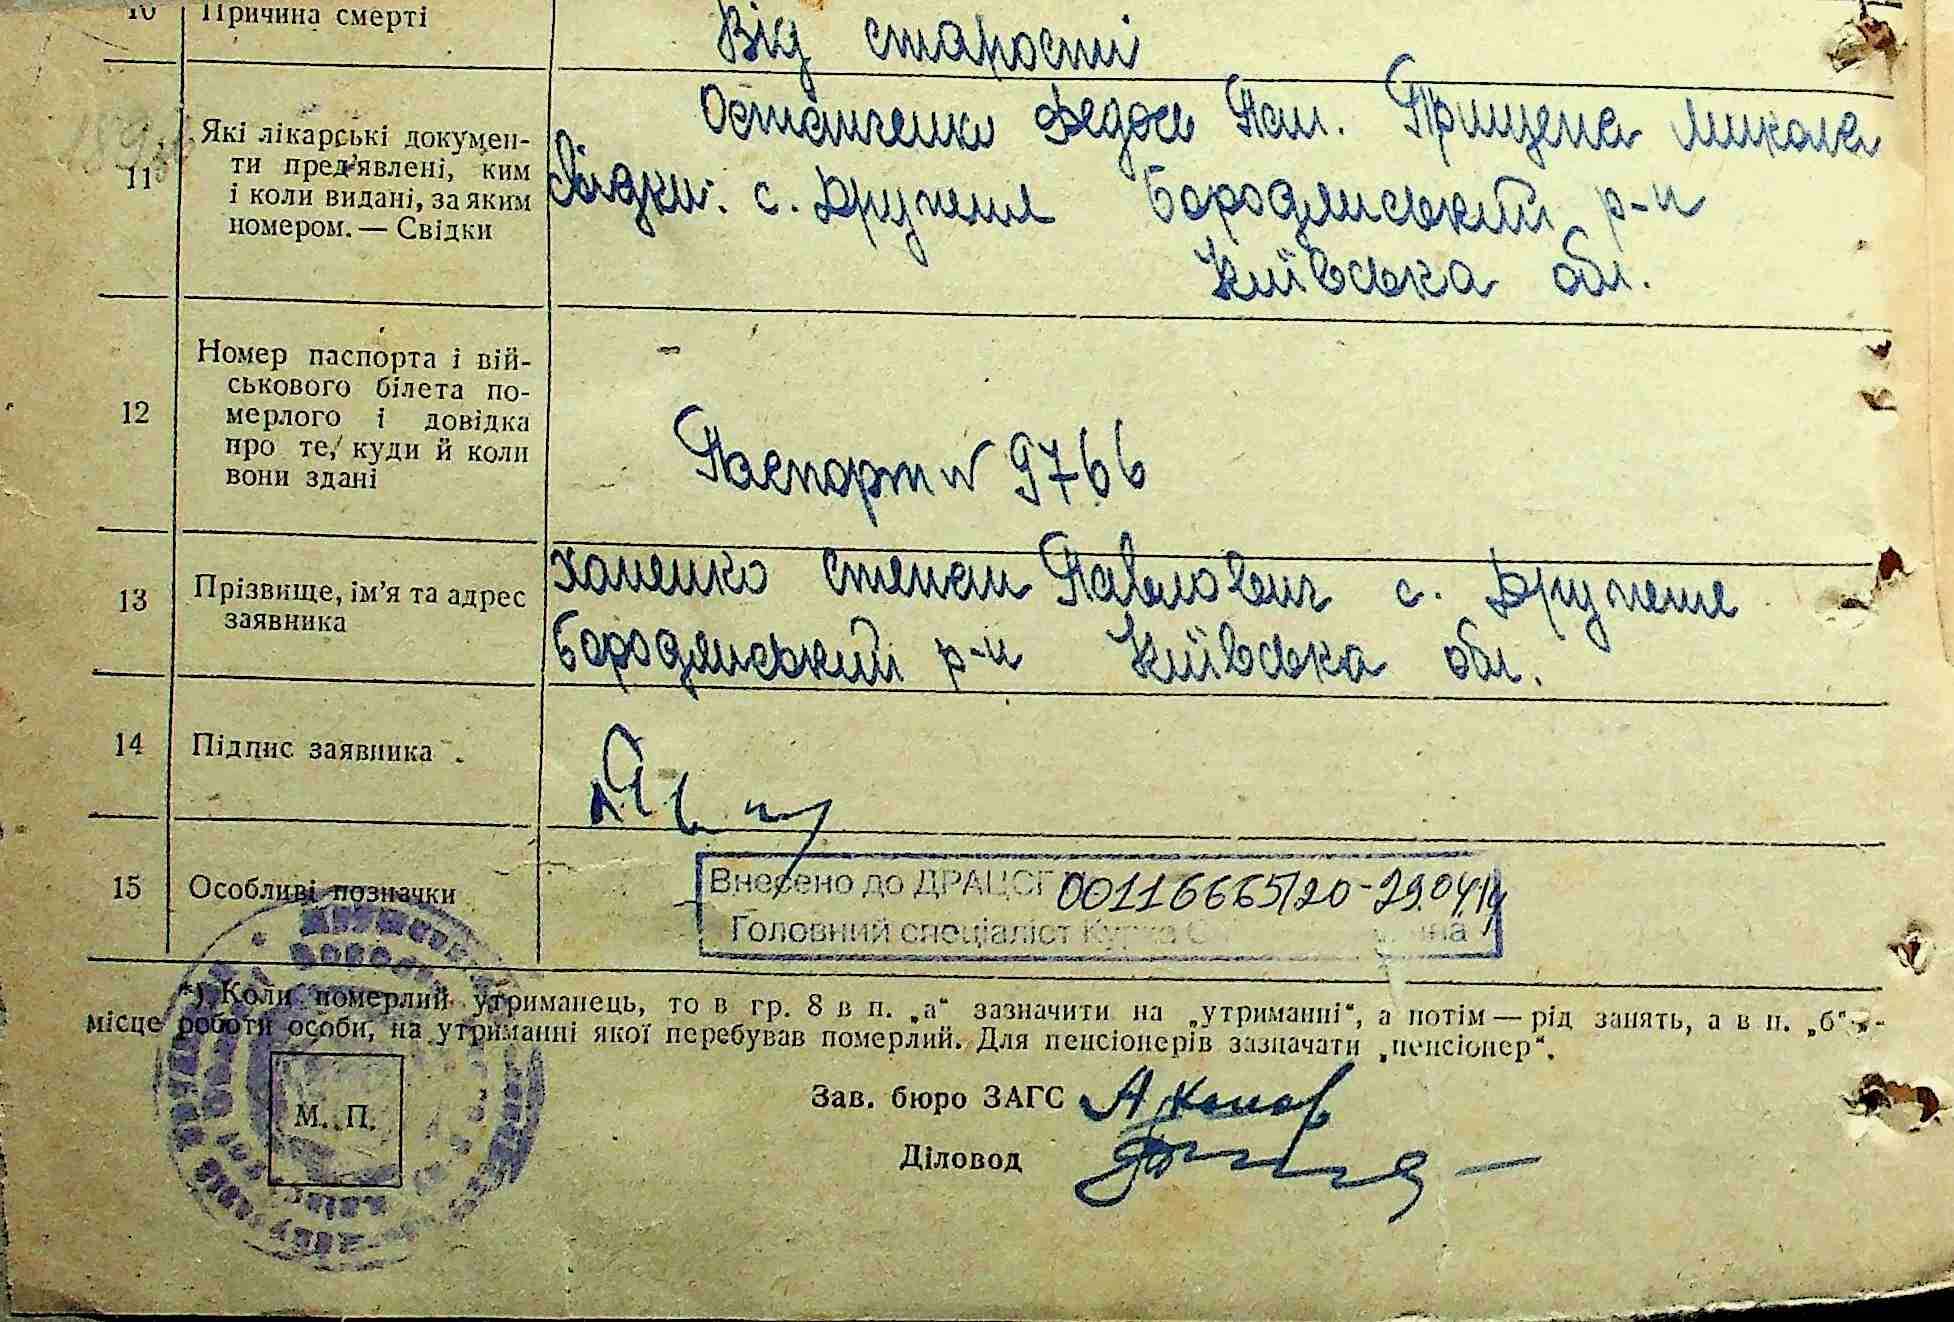 10 Причина смерті Від старості
11 Які лікарські документи пред'явлені, ким і коли видані, за яким номером. — Свідки
Остапченко Федос Пан. Прищепа Микола
Свідки: с. Друпеше Бородянський р-н
Київська обл.
12 Номер паспорта і військового білета померлого і довідка про те, куди й коли вони здані
Паспорт N 9766
13 Прізвище, ім'я та адрес заявника
Ханенко Степан Павлович с. Друпеше
Бородянський р-н Київська обл.
14 Підпис заявника
15 Особливі позначки
Внесено до ДРАЦСГ 00116665120-29.04.14
Головний спеціаліст
*) Коли померлий утриманець, то в гр. 8 в п. „а“ зазначити на „утриманні“, а потім — рід занять, а в п. „б“ —
місце роботи особи, на утриманні якої перебував померлий. Для пенсіонерів зазначати „пенсіонер“.
М. П.
Зав. бюро ЗАГС
Діловод